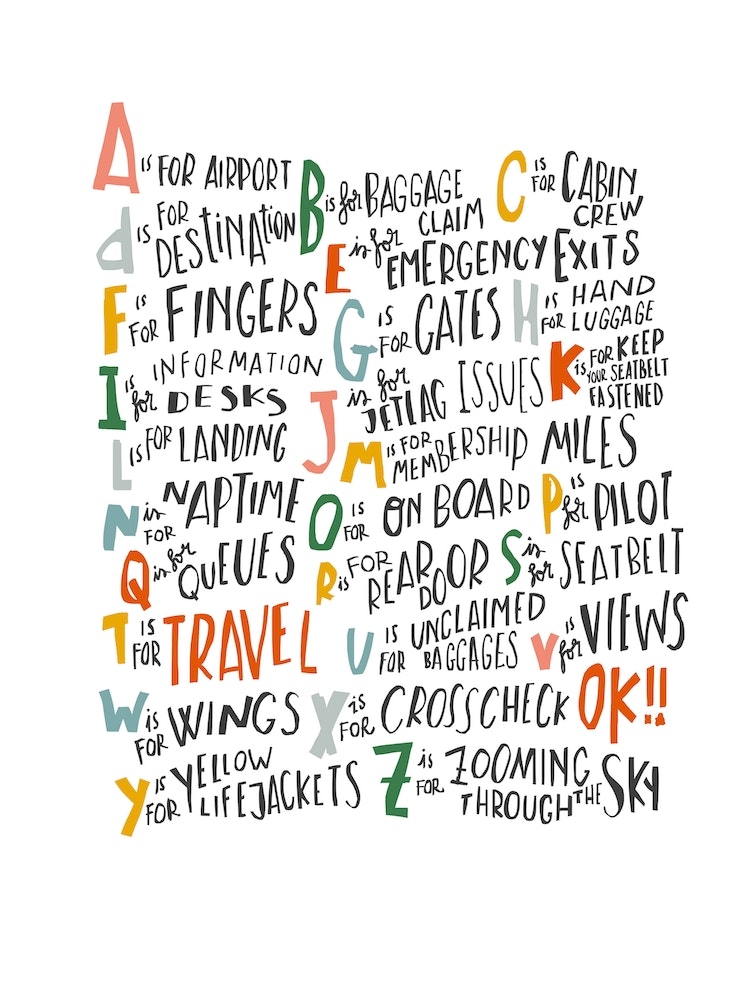 A IS FOR AIRPORT
B is for BAGGAGE CLAIM
C IS FOR CABIN CREW
d IS FOR DESTINATION
E is for EMERGENCY EXITS
F IS FOR FINGERS
G IS FOR GATES
H IS FOR HAND LUGGAGE
I IS for INFORMATION DESKS
J is for JETLAG ISSUES
K is FOR KEEP YOUR SEATBELT FASTENED
L IS FOR LANDING
M IS FOR MEMBERSHIP MILES
N is FOR NAPTIME
O IS FOR ON BOARD
P IS for PILOT
Q is for QUEUES
R is FOR REAR DOOR
S is for SEATBELT
T IS FOR TRAVEL
U IS FOR UNCLAIMED BAGGAGES
V IS for VIEWS
W is FOR WINGS
X is FOR CROSSCHECK OK!!
y IS FOR YELLOW LIFEJACKETS
Z is FOR ZOOMING THROUGH THE SKY